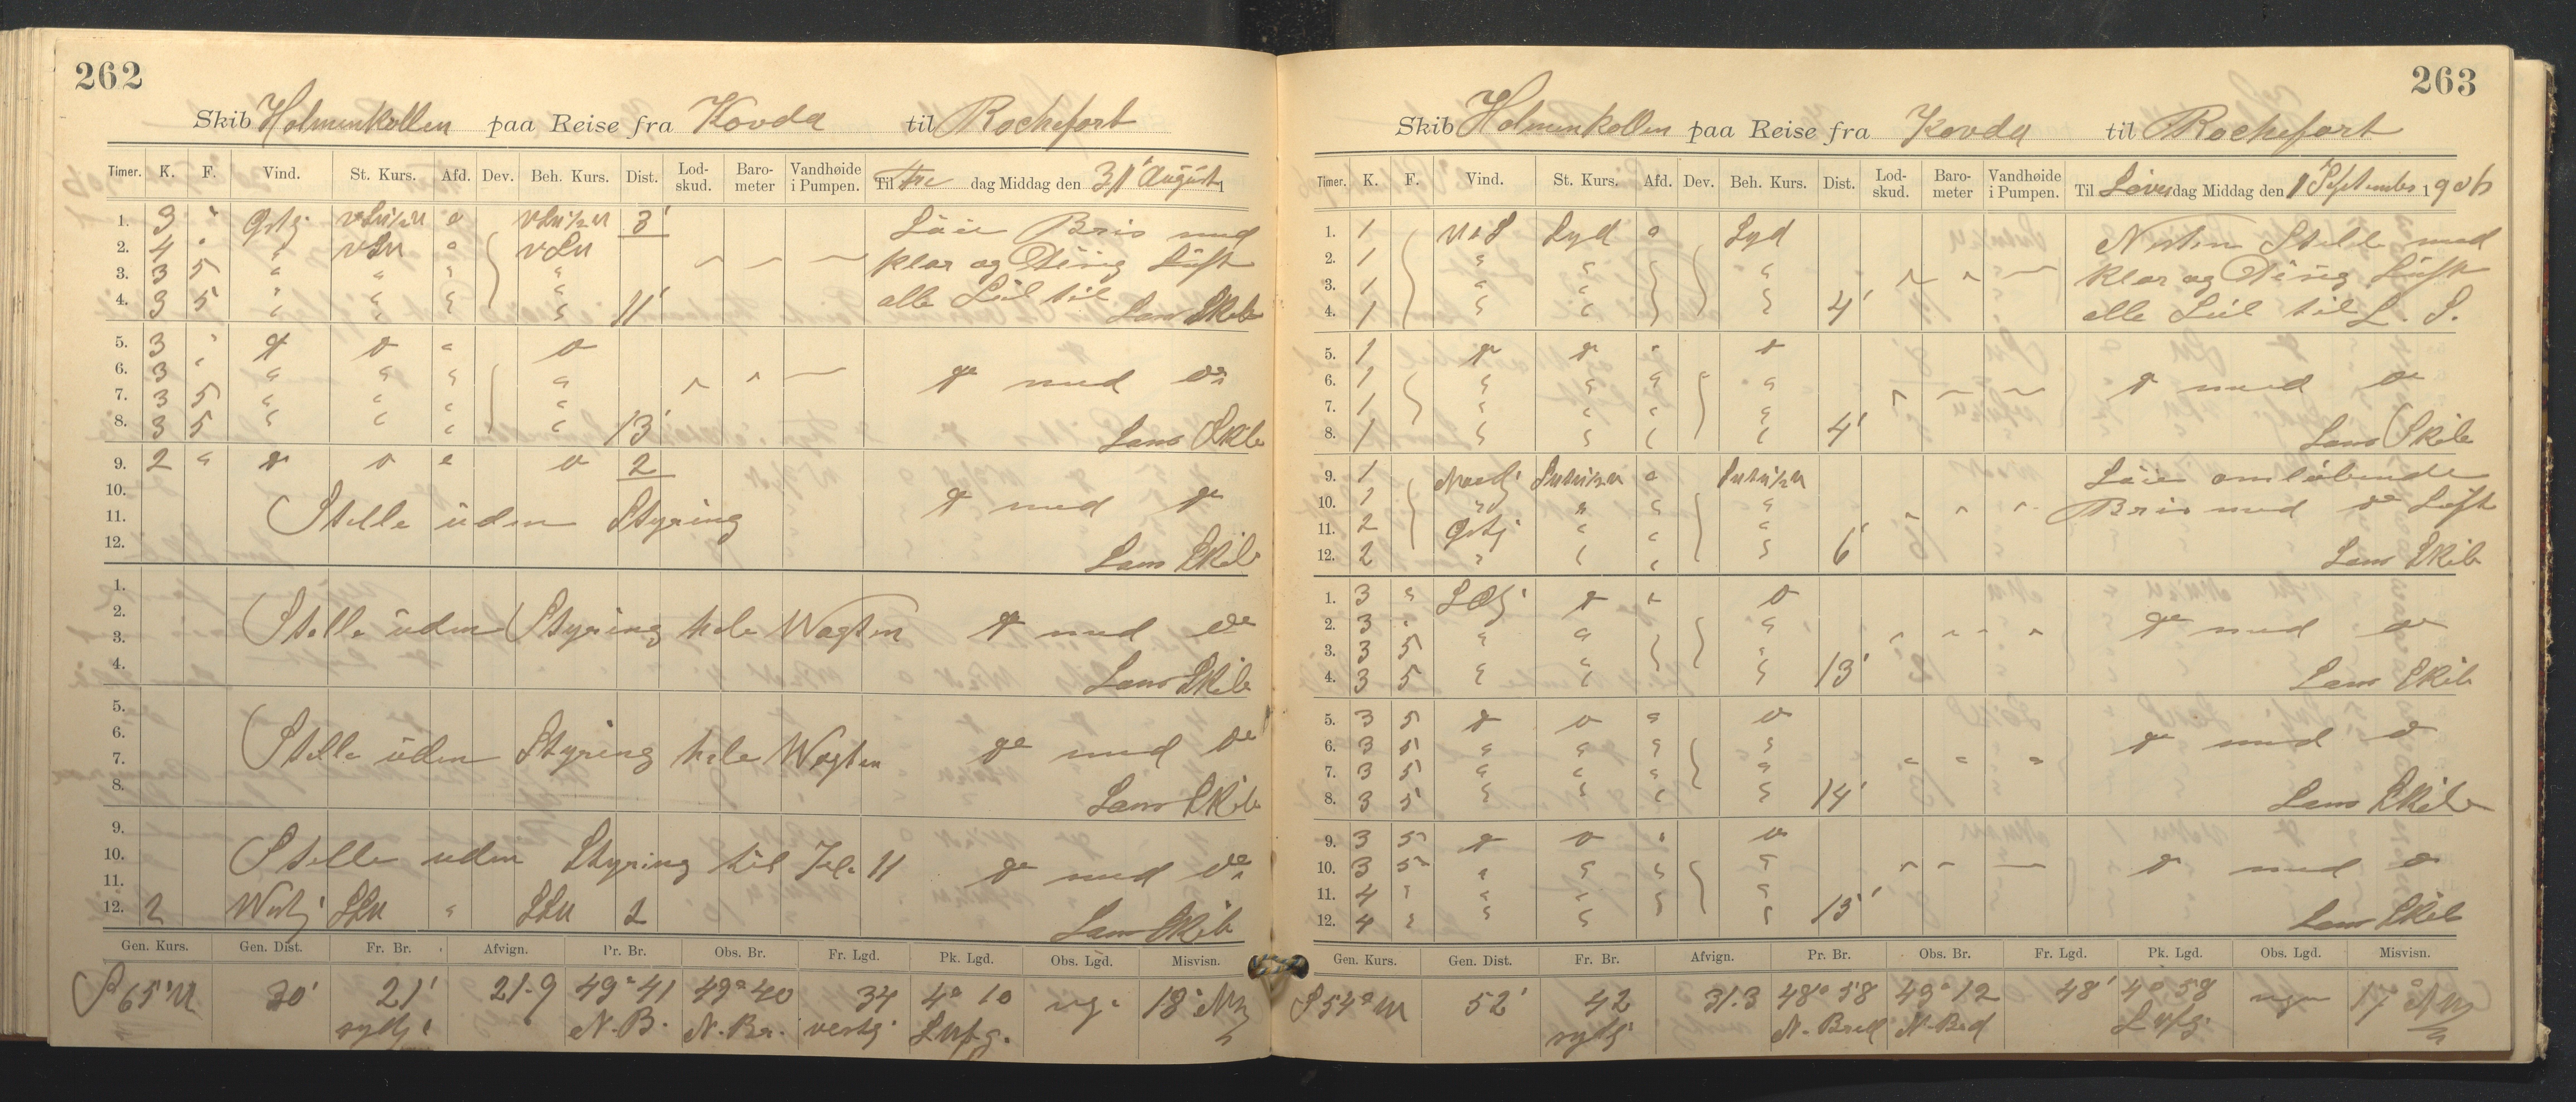 262
Skib Holmenkollen paa Reise fra Kovda til Rochefort
Timer. K. F. Vind. St. Kurs. Afd. Dev. Beh. Kurs. Dist. Lod-skud. Baro-meter Vandhøide i Pumpen. Til Fre dag Middag den 31' August 1
1. 3 " Østj vSu½u " vSu½u 3' Løie Bris med
2. 4 " " vSu " vSu klar og Diesig Luft
3. 3 5 " " " "
4. 3 5 " " " " 11' alle Seil til Lens Skib
5. 3 " do do " do
6. 3 " " " " " do med do
7. 3 5 " " " "
8. 3 5 " " " " 13' Lens Skib
9. 2 " do do " do 2
10. do med do
11. Stille uden Styring
12. Lens Skib
1.
2. Stille uden Styring hele Wagten do med do
3.
4. Lens Skib
5.
6. Stille uden Styring hele Wagten do med do
7.
8. Lens Skib
9.
10. Stille uden Styring til Kl. 11 do med do
11.
12. 2 Westj SSu " SSu 2 Lens Skib
Gen. Kurs. Gen. Dist. Fr. Br. Afvign. Pr. Br. Obs. Br. Fr. Lgd. Pk. Lgd. Obs. Lgd. Misvisn.
S 65° W 30' 21' 21.9 49° 41 49° 40 34 4° 10 18°
sydj N. B. N. Br. vestj
263
Skib Holmenkollen paa Reise fra Kovda til Rochefort
Timer. K. F. Vind. St. Kurs. Afd. Dev. Beh. Kurs. Dist. Lod-skud. Baro-meter Vandhøide i Pumpen. Til Løver dag Middag den 1 September 1906
1. 1 Syd " Syd Nesten Stille med
2. 1 " " " klar og Diesig Luft
3. 1 " " "
4. 1 " " " 4' alle Seil til L. S.
5. 1 do do " do
6. 1 " " " " do med do
7. 1 " " " "
8. 1 " " " " 4' Lens Skib
9. 1 Nordj " Løie omløbende
10. 1 " " " " Bris med do Luft
11. 2 Østj " " "
12. 2 " " " " 6' Lens Skib
1. 3 " SOj do " do
2. 3 " " do med do
3. 3 5 " " "
4. 3 5 " " " 13' Lens Skib
5. 3 5 do do " do
6. 3 5 " " " " do med do
7. 3 5 " " " "
8. 3 5 " " " " 14' Lens Skib
9. 3 5 do do " do
10. 3 5 " " " " do med do
11. 4 " " " " "
12. 4 " " " " 15' Lens Skib
Gen. Kurs. Gen. Dist. Fr. Br. Afvign. Pr. Br. Obs. Br. Fr. Lgd. Pk. Lgd. Obs. Lgd. Misvisn.
S 54° W 52' 42 31.3 48° 58 49° 12 48' 4° 58 17°
sydj N. Bred N. Bred